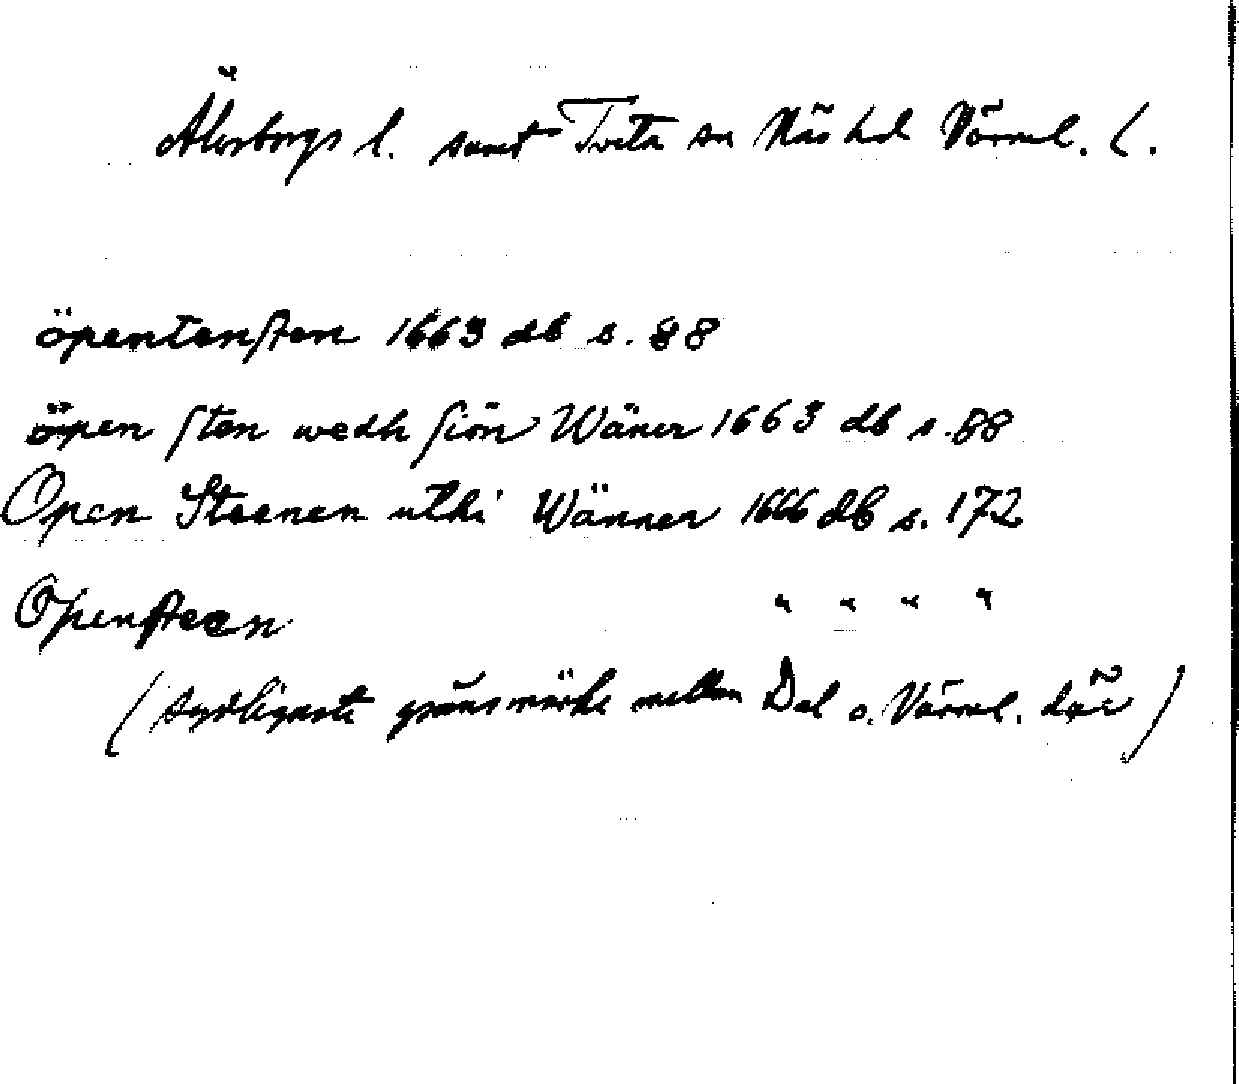 Älvsborgs l. samt Tveta sn Näs hd Värml. l.
öpentensten 1663 db s. 88
öpen sten wedh siön Wäner 1663 db s. 88
Open Steenen uthi Wänner 1666 db s. 172
Opensteen " " " "
(sydligaste gränsmärke mellan Dal o. Värml. där)